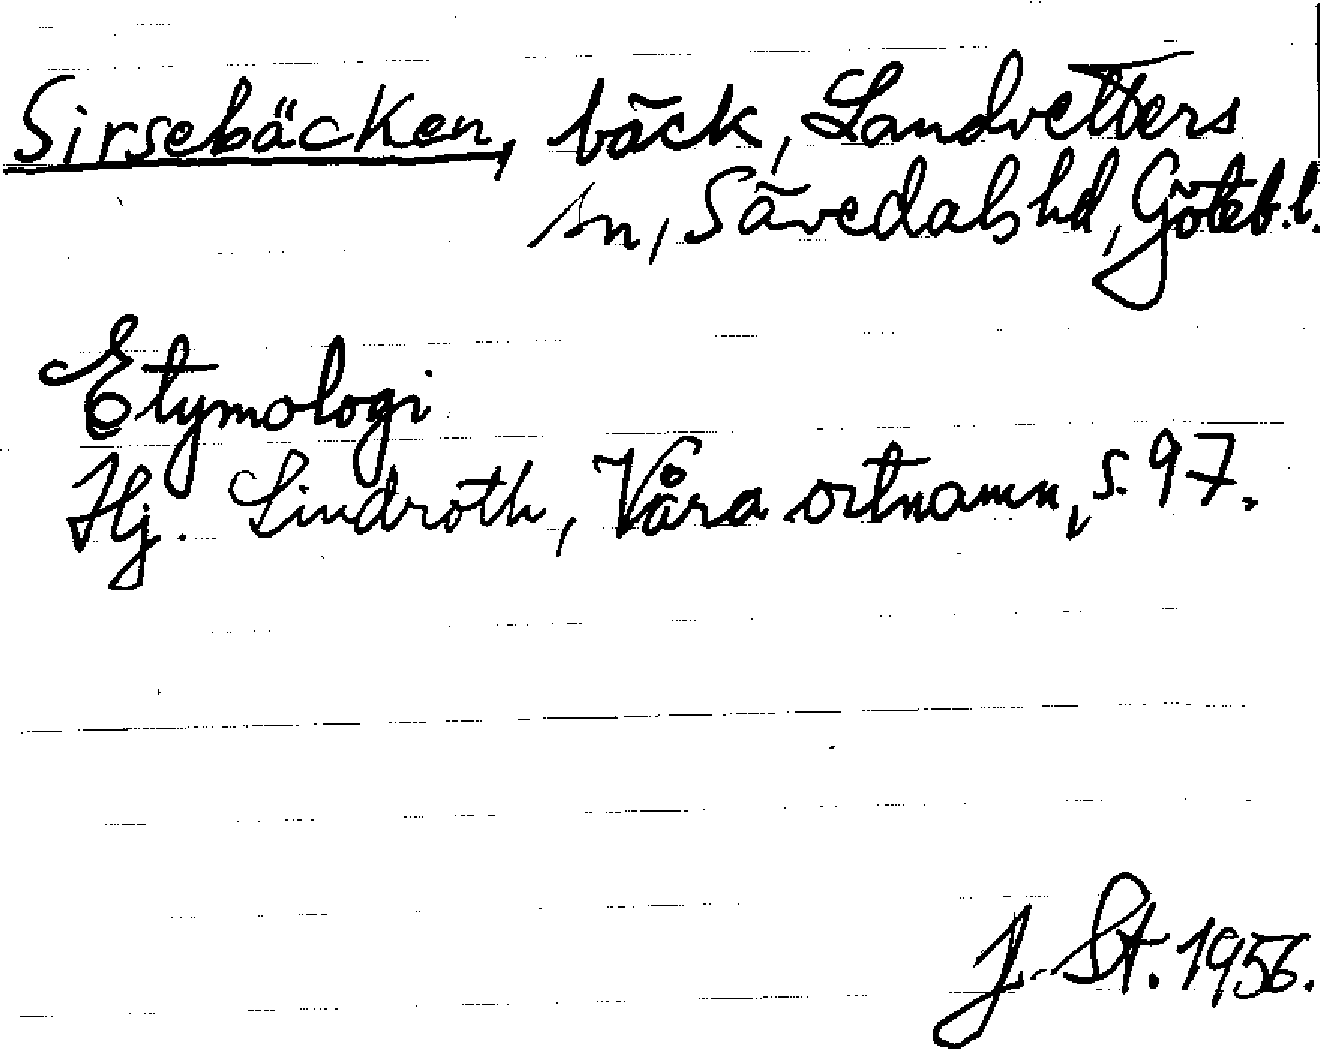 Sirsebäcken, bäck, Landvetters
sn, Sävedals hd, Göteb. l.
Etymologi
Hj. Lindroth, Våra ortnamn, s. 97.
J. St. 1956.